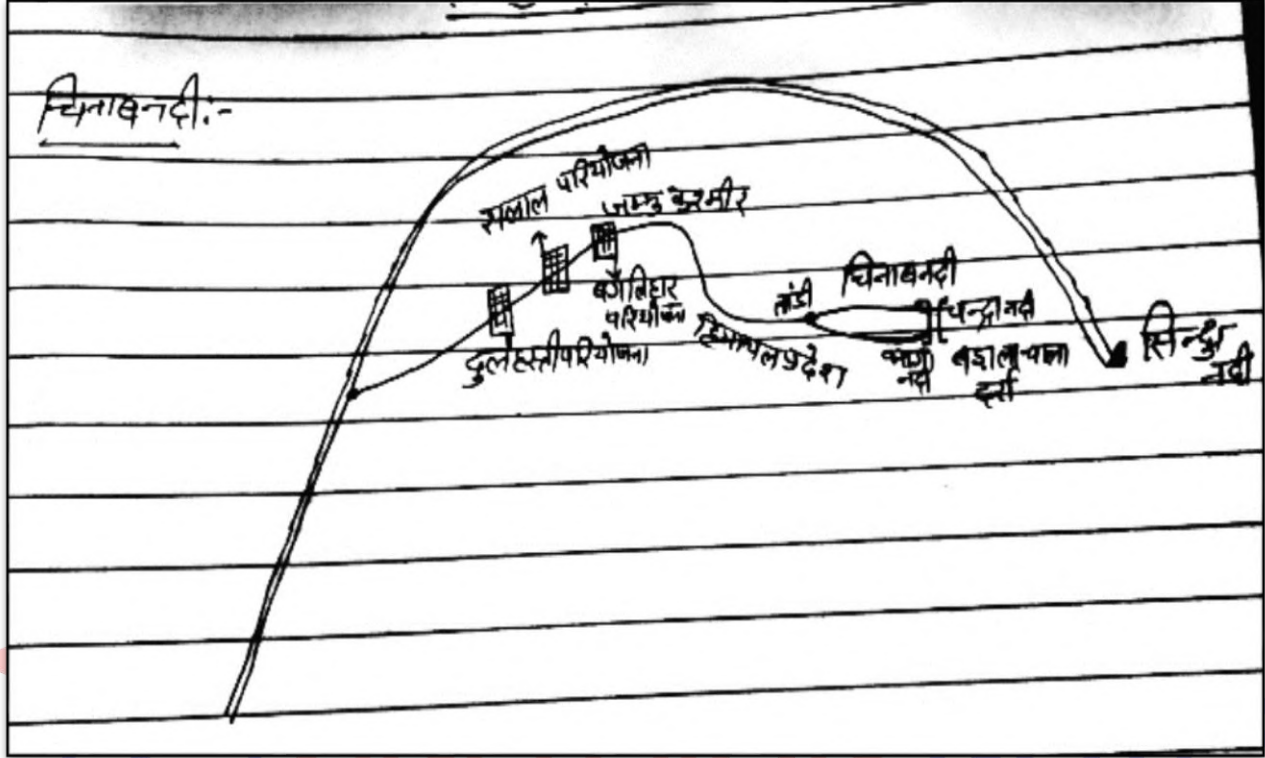 चिनाब नदी:-
सलाल परियोजना
जम्मू कश्मीर
बगलिहार
परियोजना
दुलहस्ती परियोजना
हिमाचल प्रदेश
तांडी
चिनाब नदी
चन्द्रा नदी
नदी
दर्रा
सिन्धु
नदी